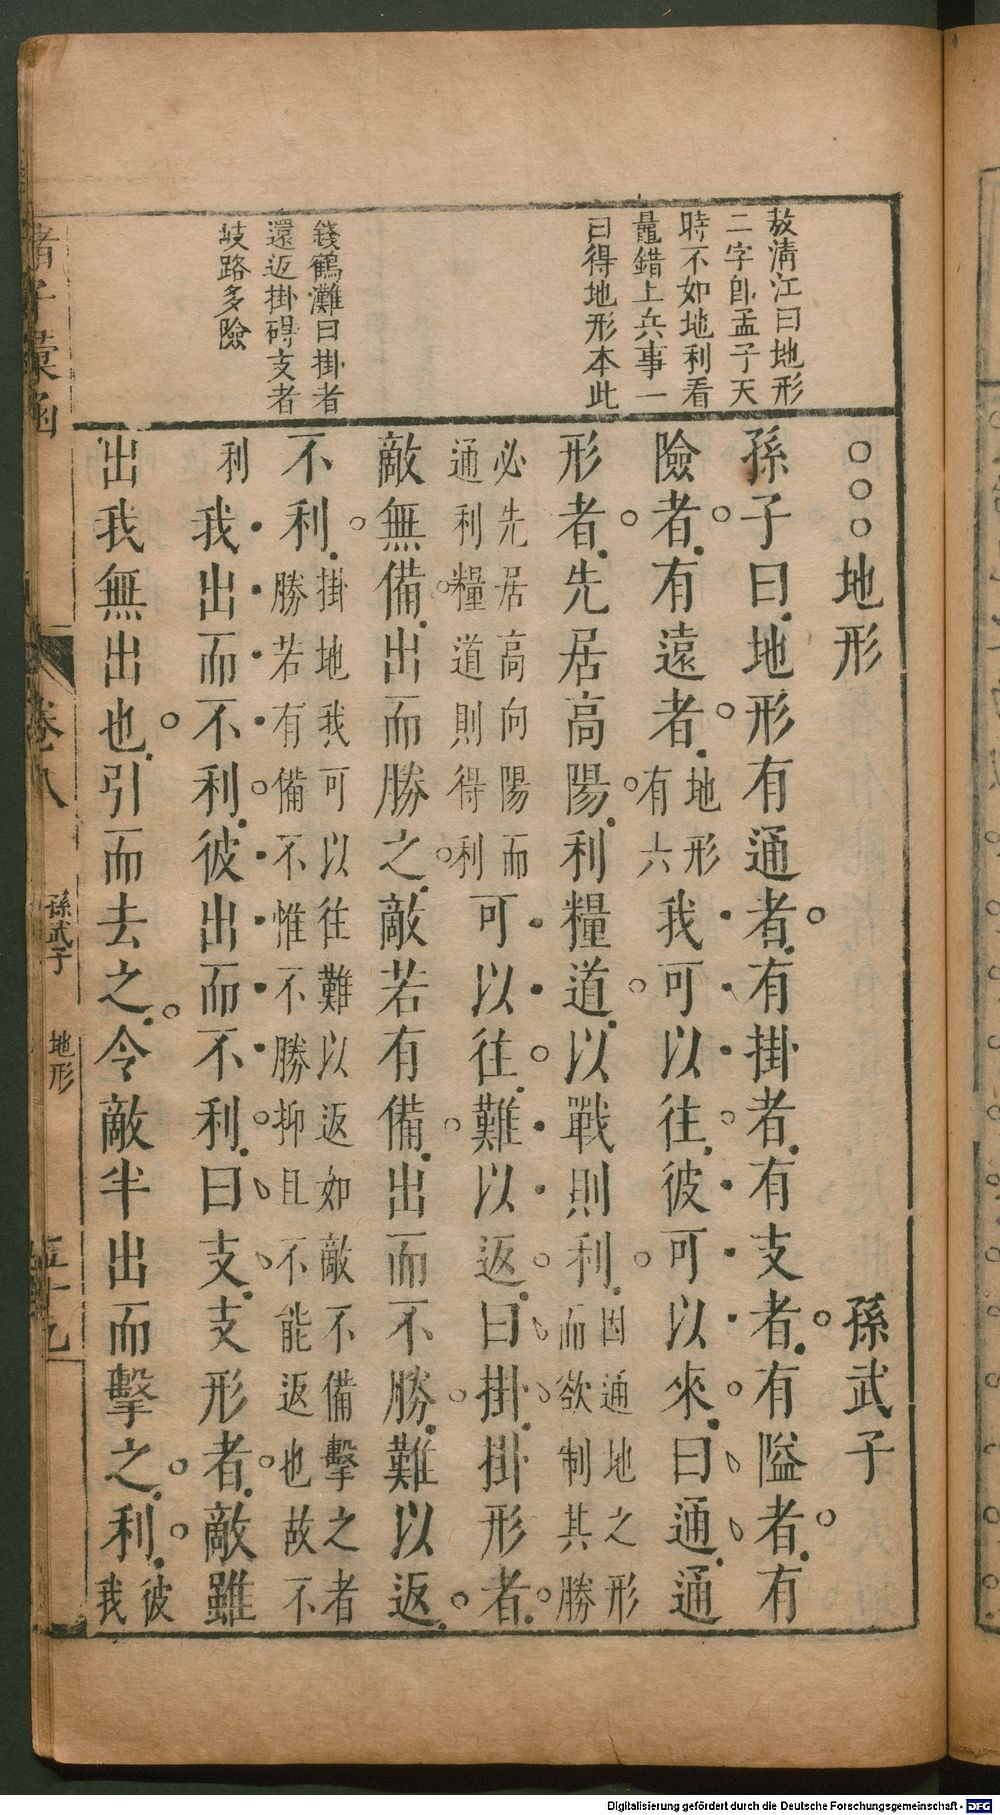 敖清江曰地形
二字卽孟子天
時不如地利看
鼂錯上兵事一
曰得地形本此
錢鶴灘曰掛者
還返掛碍支者
岐路多險
○○○地形 孫武子
孫子曰地形有通者有掛者有支者有隘者有
險者有遠者地形有六我可以往彼可以來曰通通
形者先居高陽利糧道以戰則利因通地之形而欲制其勝
必先居高向陽而通利糧道則得利可以往難以返曰掛掛形者
敵無備出而勝之敵若有備出而不勝難以返
不利掛地我可以往難以返如敵不備擊之者勝若有備不惟不勝抑且不能返也故不
利我出而不利彼出而不利曰支支形者敵雖
出我無出也引而去之令敵半出而擊之利彼我
諸子彙函 卷八 孫武子 地形 五十九
Digitalisierung gefördert durch die Deutsche Forschungsgemeinschaft - DFG